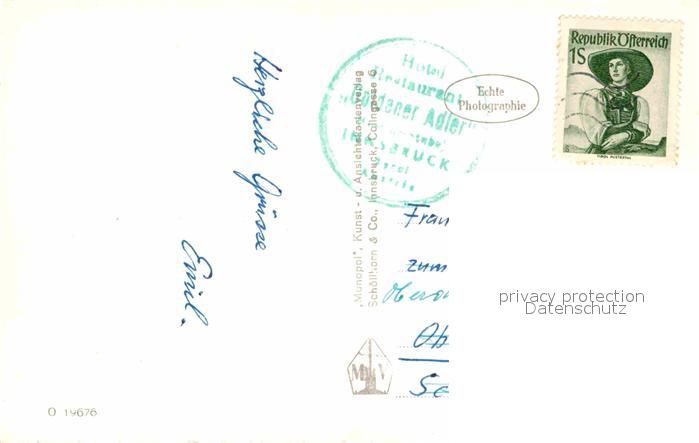 Herzliche Grüsse
Emil.
Hotel
Restaurant
"Goldener Adler"
INNSBRUCK
Tirol
Austria
"Monopol", Kunst- u. Ansichtskartenverlag
Schöllhorn & Co., Innsbruck, Colingasse 6
Echte
Photographie
Republik Österreich
1S
TIROL, PUSTERTAL
zum
privacy protection
Datenschutz
M V
O 19676